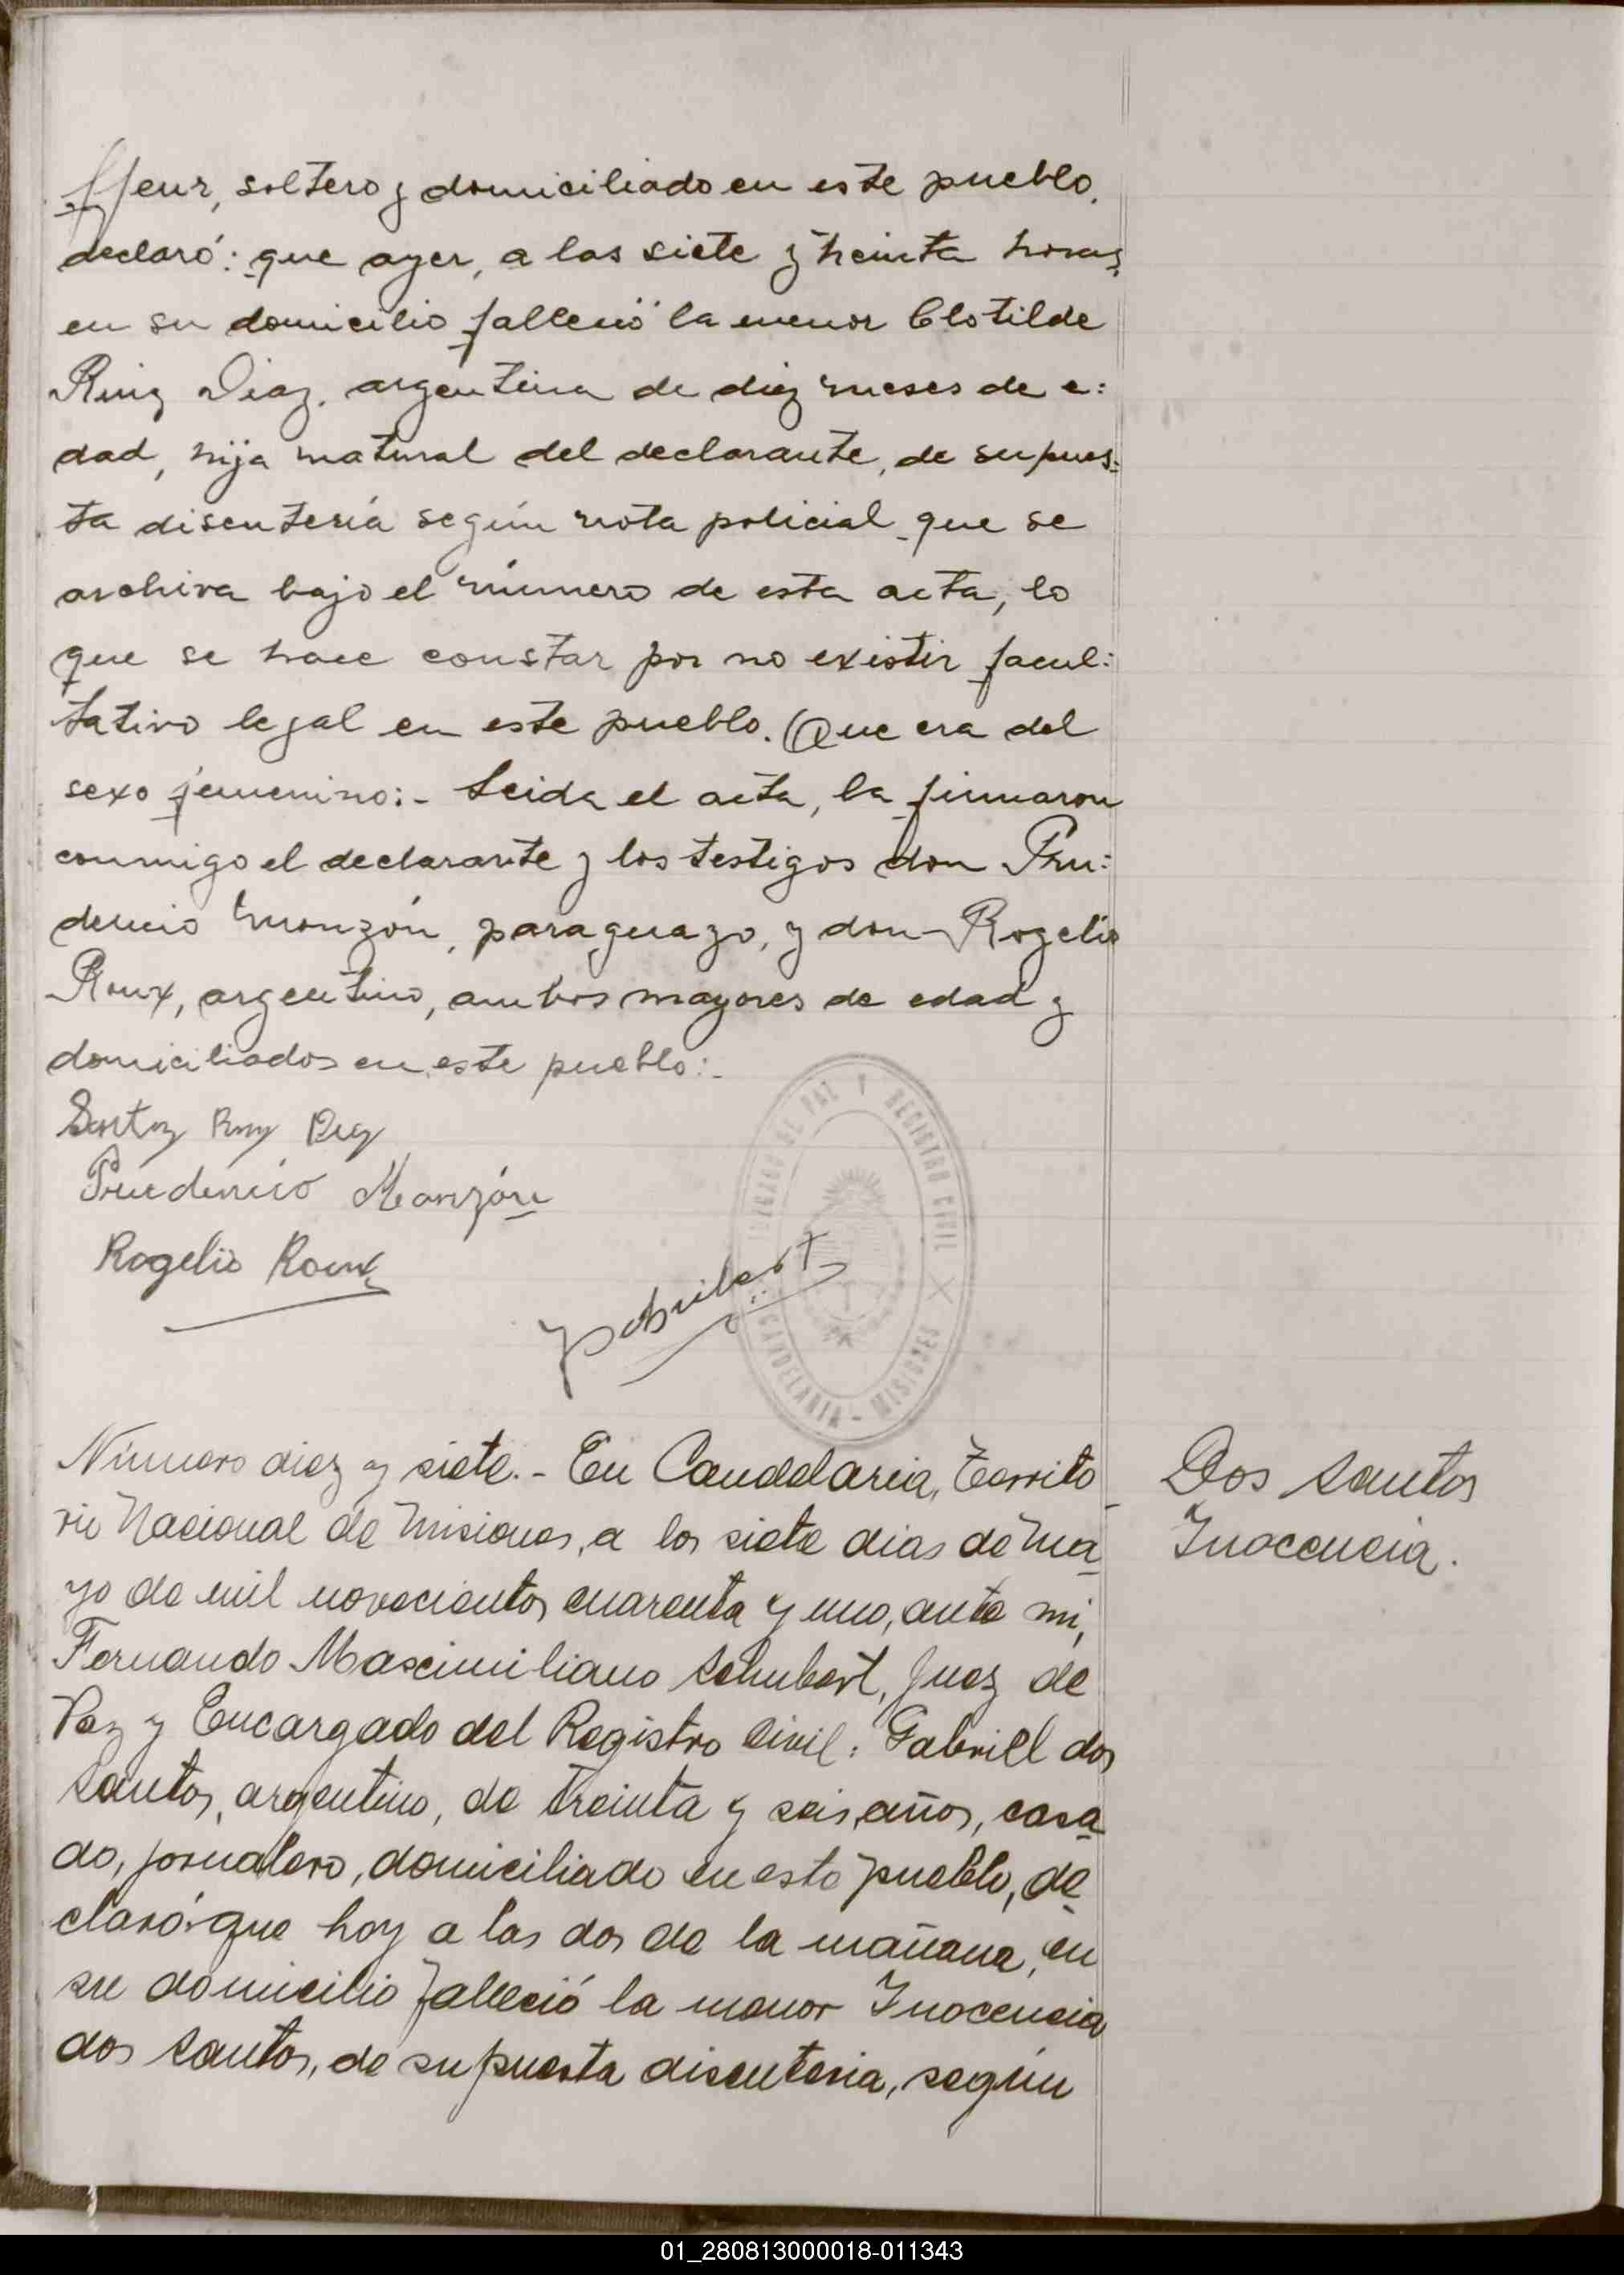 ffeur, soltero y domiciliado en este pueblo,
declaró: que ayer, a las siete y treinta horas,
en su domicilio falleció la menor Clotilde
Ruiz Diaz, argentina de diez meses de e:
dad, hija natural del declarante, de supues:
ta disentería según nota policial que se
archiva bajo el número de esta acta, lo
que se hace constar por no existir facul:
tativo legal en este pueblo. Que era del
sexo femenino:- Leida el acta, la firmaron
conmigo el declarante y los testigos don Pru:
dencio Monzón, paraguayo, y don Rogelio
Roux, argentino, ambos mayores de edad y
domiciliados en este pueblo:-
Prudencio Monzón
Rogelio Roux
JUZGADO DE PAZ Y REGISTRO CIVIL
CANDELARIA - MISIONES
Número diez y siete.- En Candelaria, Territo
rio Nacional de Misiones, a los siete dias de Ma
yo de mil novecientos cuarenta y uno, ante mi,
Fernando Mascimiliano Schubert, Juez de
Paz y Encargado del Registro Civil: Gabriel dos
Santos, argentino, de treinta y seis años, casa
do, jornalero, domiciliado en este pueblo, de
claró: que hoy a las dos de la mañana, en
su domicilio falleció la menor Inocencia
dos Santos, de supuesta disenteria, según
Dos Santos
Inocencia.
01_280813000018-011343